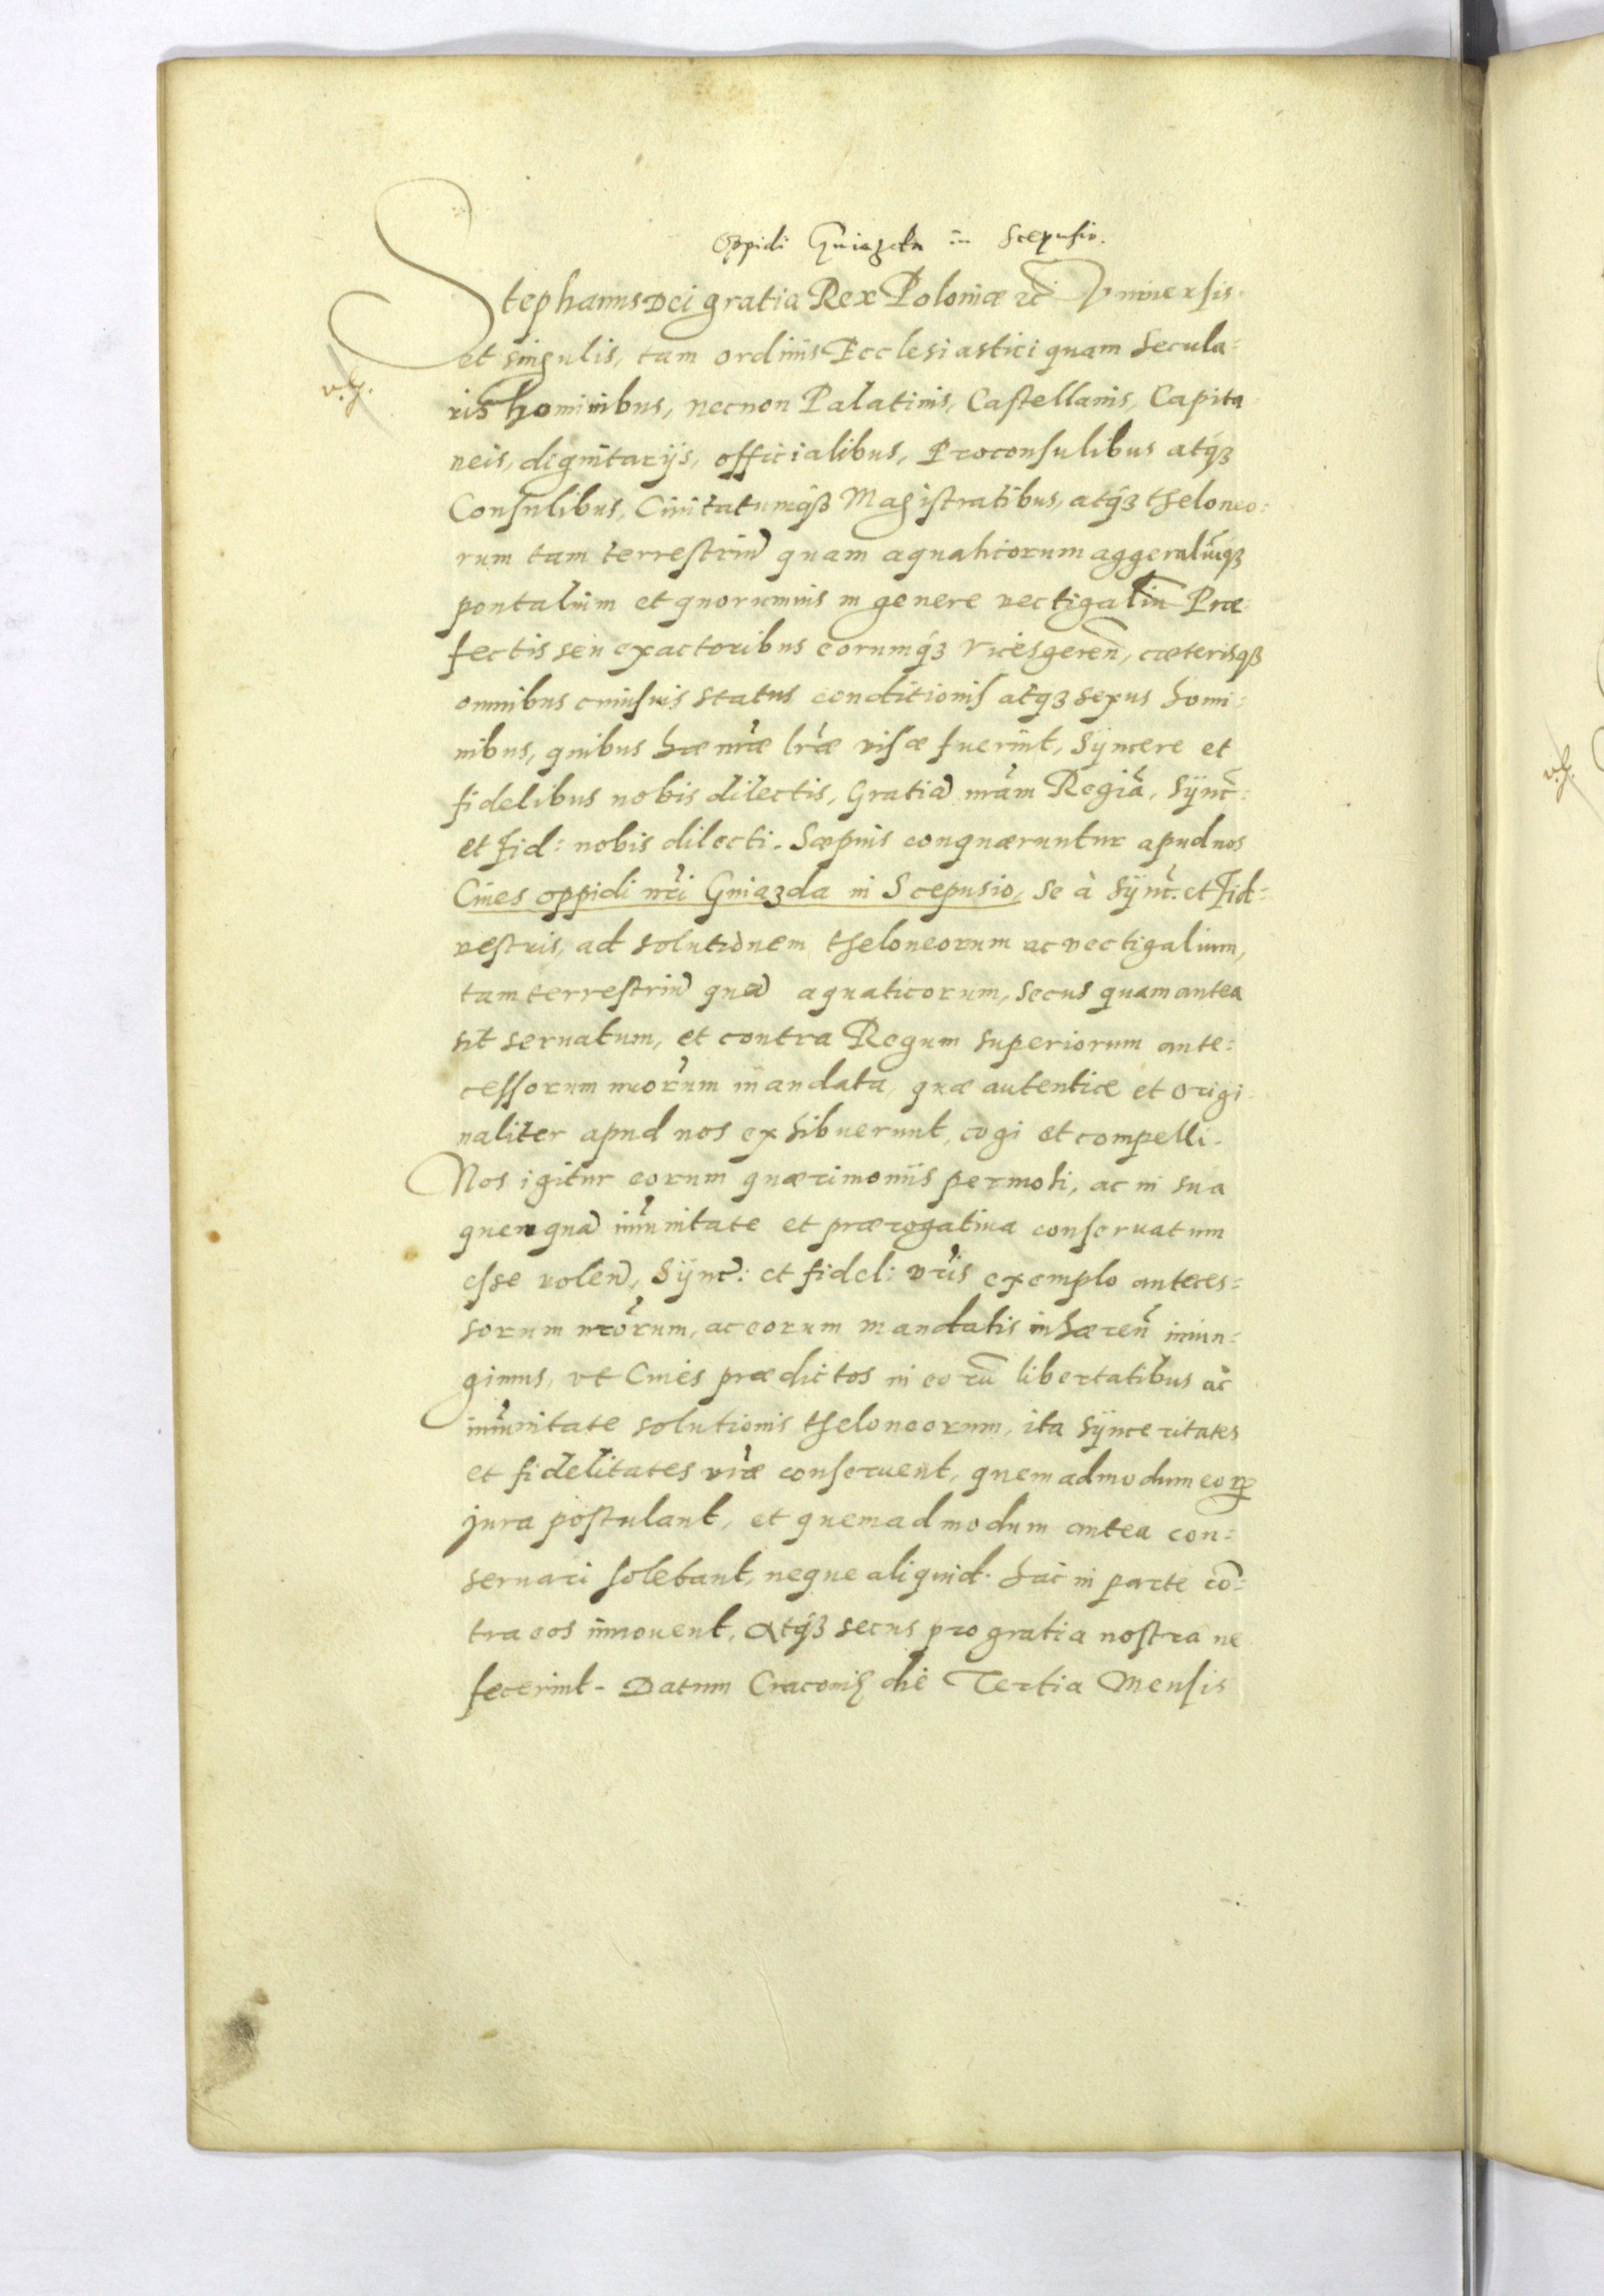 Oppidi Gniazda in Scepusio.
Stephanus Dei gratia Rex Poloniæ etc̃ Vniuersis
et singulis, tam ordinis Ecclesiastici quam secula=
ris hominibus, necnon Palatinis, Castellanis, Capita
v.g.
neis, dignitarijs, officialibus, Proconsulibus atq́ꝫ
Consulibus, Ciuitatumq́ꝫ Magistratibus, atq́ꝫ theloneo=
rum tam terrestriũ quam aquaticorum aggeraliũq́ꝫ
pontalium et quorumuis in genere vectigaliũ Præ=
fectis seu exactoribus eorumq́ꝫ vicesgereñ, cæterisq́ꝫ
omnibus cuiusuis status conditionis atq́ꝫ sexus homi=
nibus, quibus hæ nr̃æ lr̃æ visæ fuerint, Syncere et
fidelibus nobis dilectis, Gratiã nr̃am Regiã. Sync̃:
et fid: nobis dilecti. Sæpius conquæruntur apud nos
Ciues oppidi nr̃i Gniazda in Scepusio, se à Sync̃. et Fid=
vestris, ad solutionem theloneorum ac vectigalium,
tam terrestriũ quã aquaticorum, secus quam antea
sit seruatum, et contra Regum superiorum ante=
cessorum nr̃orum mandata, quæ autenticæ et origi
naliter apud nos exhibuerunt, cogi et compelli.
Nos igitur eorum quærimoniis permoti, ac in sua
quenquã im̃unitate et prærogatiua conseruatum
esse voleñ, Sync̃: et fidel: vr̃is exemplo anteces=
sorum nr̃orum, ac eorum mandatis inhæreñ iniun=
gimus, vt Ciues prædictos in eorũ libertatibus ac
im̃unitate solutionis theloneorum, ita Synceritates
et fidelitates vr̃æ conseruent, quemadmodum eoꝝ
jura postulant, et quemadmodum antea con=
seruari solebant, neque aliquid hac in parte cõ=
tra eos innouent, Atq́ꝫ secus pro gratia nostra ne
fecerint. Datum Cracouię die Tertia Mensis
v.g.